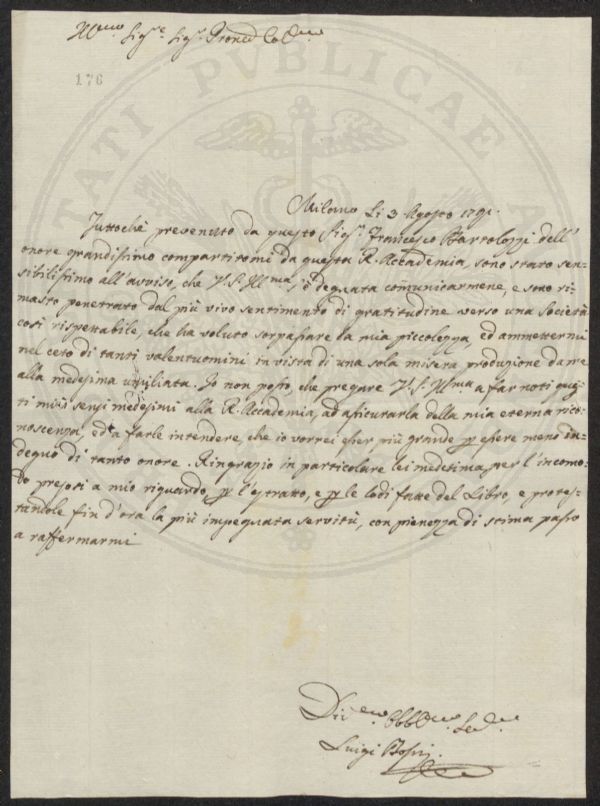 Sig.re Sig.r Prone Col.mo
176
Milano Li 3 Agosto 1791.
Tuttochè prevenuto da questo Sig.r Francesco Bartolozzi dell'
onore grandissimo compartitomi da questa R. Accademia, sono stato sen-
sibilissimo all'avviso, che V. S. Ill.ma si è degnata comunicarmene, e sono ri-
masto penetrato dal più vivo sentimento di gratitudine verso una Società
così rispettabile, che ha voluto sorpassare la mia piccolezza, ed ammettermi
nel ceto di tanti valentuomini in vista di una sola misera produzione da me
alla medesima umiliata. Io non posso, che pregare V. S. Ill.ma a far noti ques-
ti miei sensi medesimi alla R. Accademia, ad assicurarla della mia eterna rico-
noscenza, ed a farle intendere, che io vorrei esser più grande per essere meno in-
degno di tanto onore. Ringrazio in particolare lei medesima per l'incomo-
do presosi a mio riguardo, per l'estratto, e per le lodi fatte del Libro, e protes-
tandole fin d'ora la più impegnata servitù, con pienezza di stima passo
a raffermarmi
Obbl.mo
Luigi Bossi
PUBLICAE